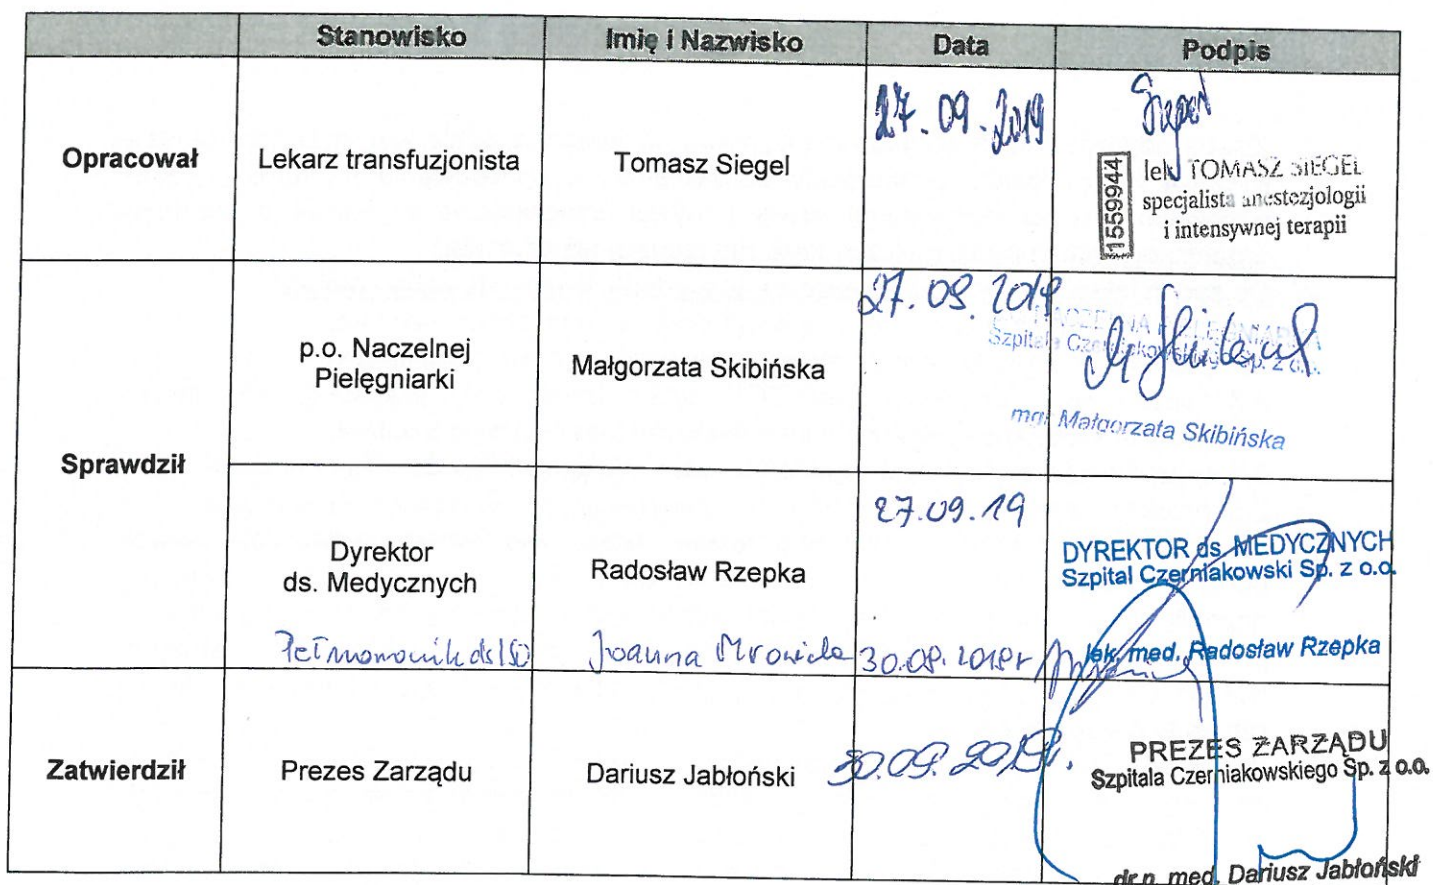 Stanowisko Imię i Nazwisko Data Podpis
Opracował Lekarz transfuzjonista Tomasz Siegel 27.09.2019
1559944
lek. TOMASZ SIEGEL
specjalista anestezjologii
i intensywnej terapii
Sprawdził
p.o. Naczelnej
Pielęgniarki
Małgorzata Skibińska
27.09.2019
NACZELNA PIELĘGNIARKA
Szpitala Czerniakowskiego Sp. z o.o.
mgr Małgorzata Skibińska
Dyrektor
ds. Medycznych
Radosław Rzepka
27.09.19
DYREKTOR ds. MEDYCZNYCH
Szpital Czerniakowski Sp. z o.o.
lek. med. Radosław Rzepka
Pełnomocnik ds ISO Joanna 30.09.2019r
Zatwierdził Prezes Zarządu Dariusz Jabłoński 30.09.2019r.
PREZES ZARZĄDU
Szpitala Czerniakowskiego Sp. z o.o.
dr n. med. Dariusz Jabłoński